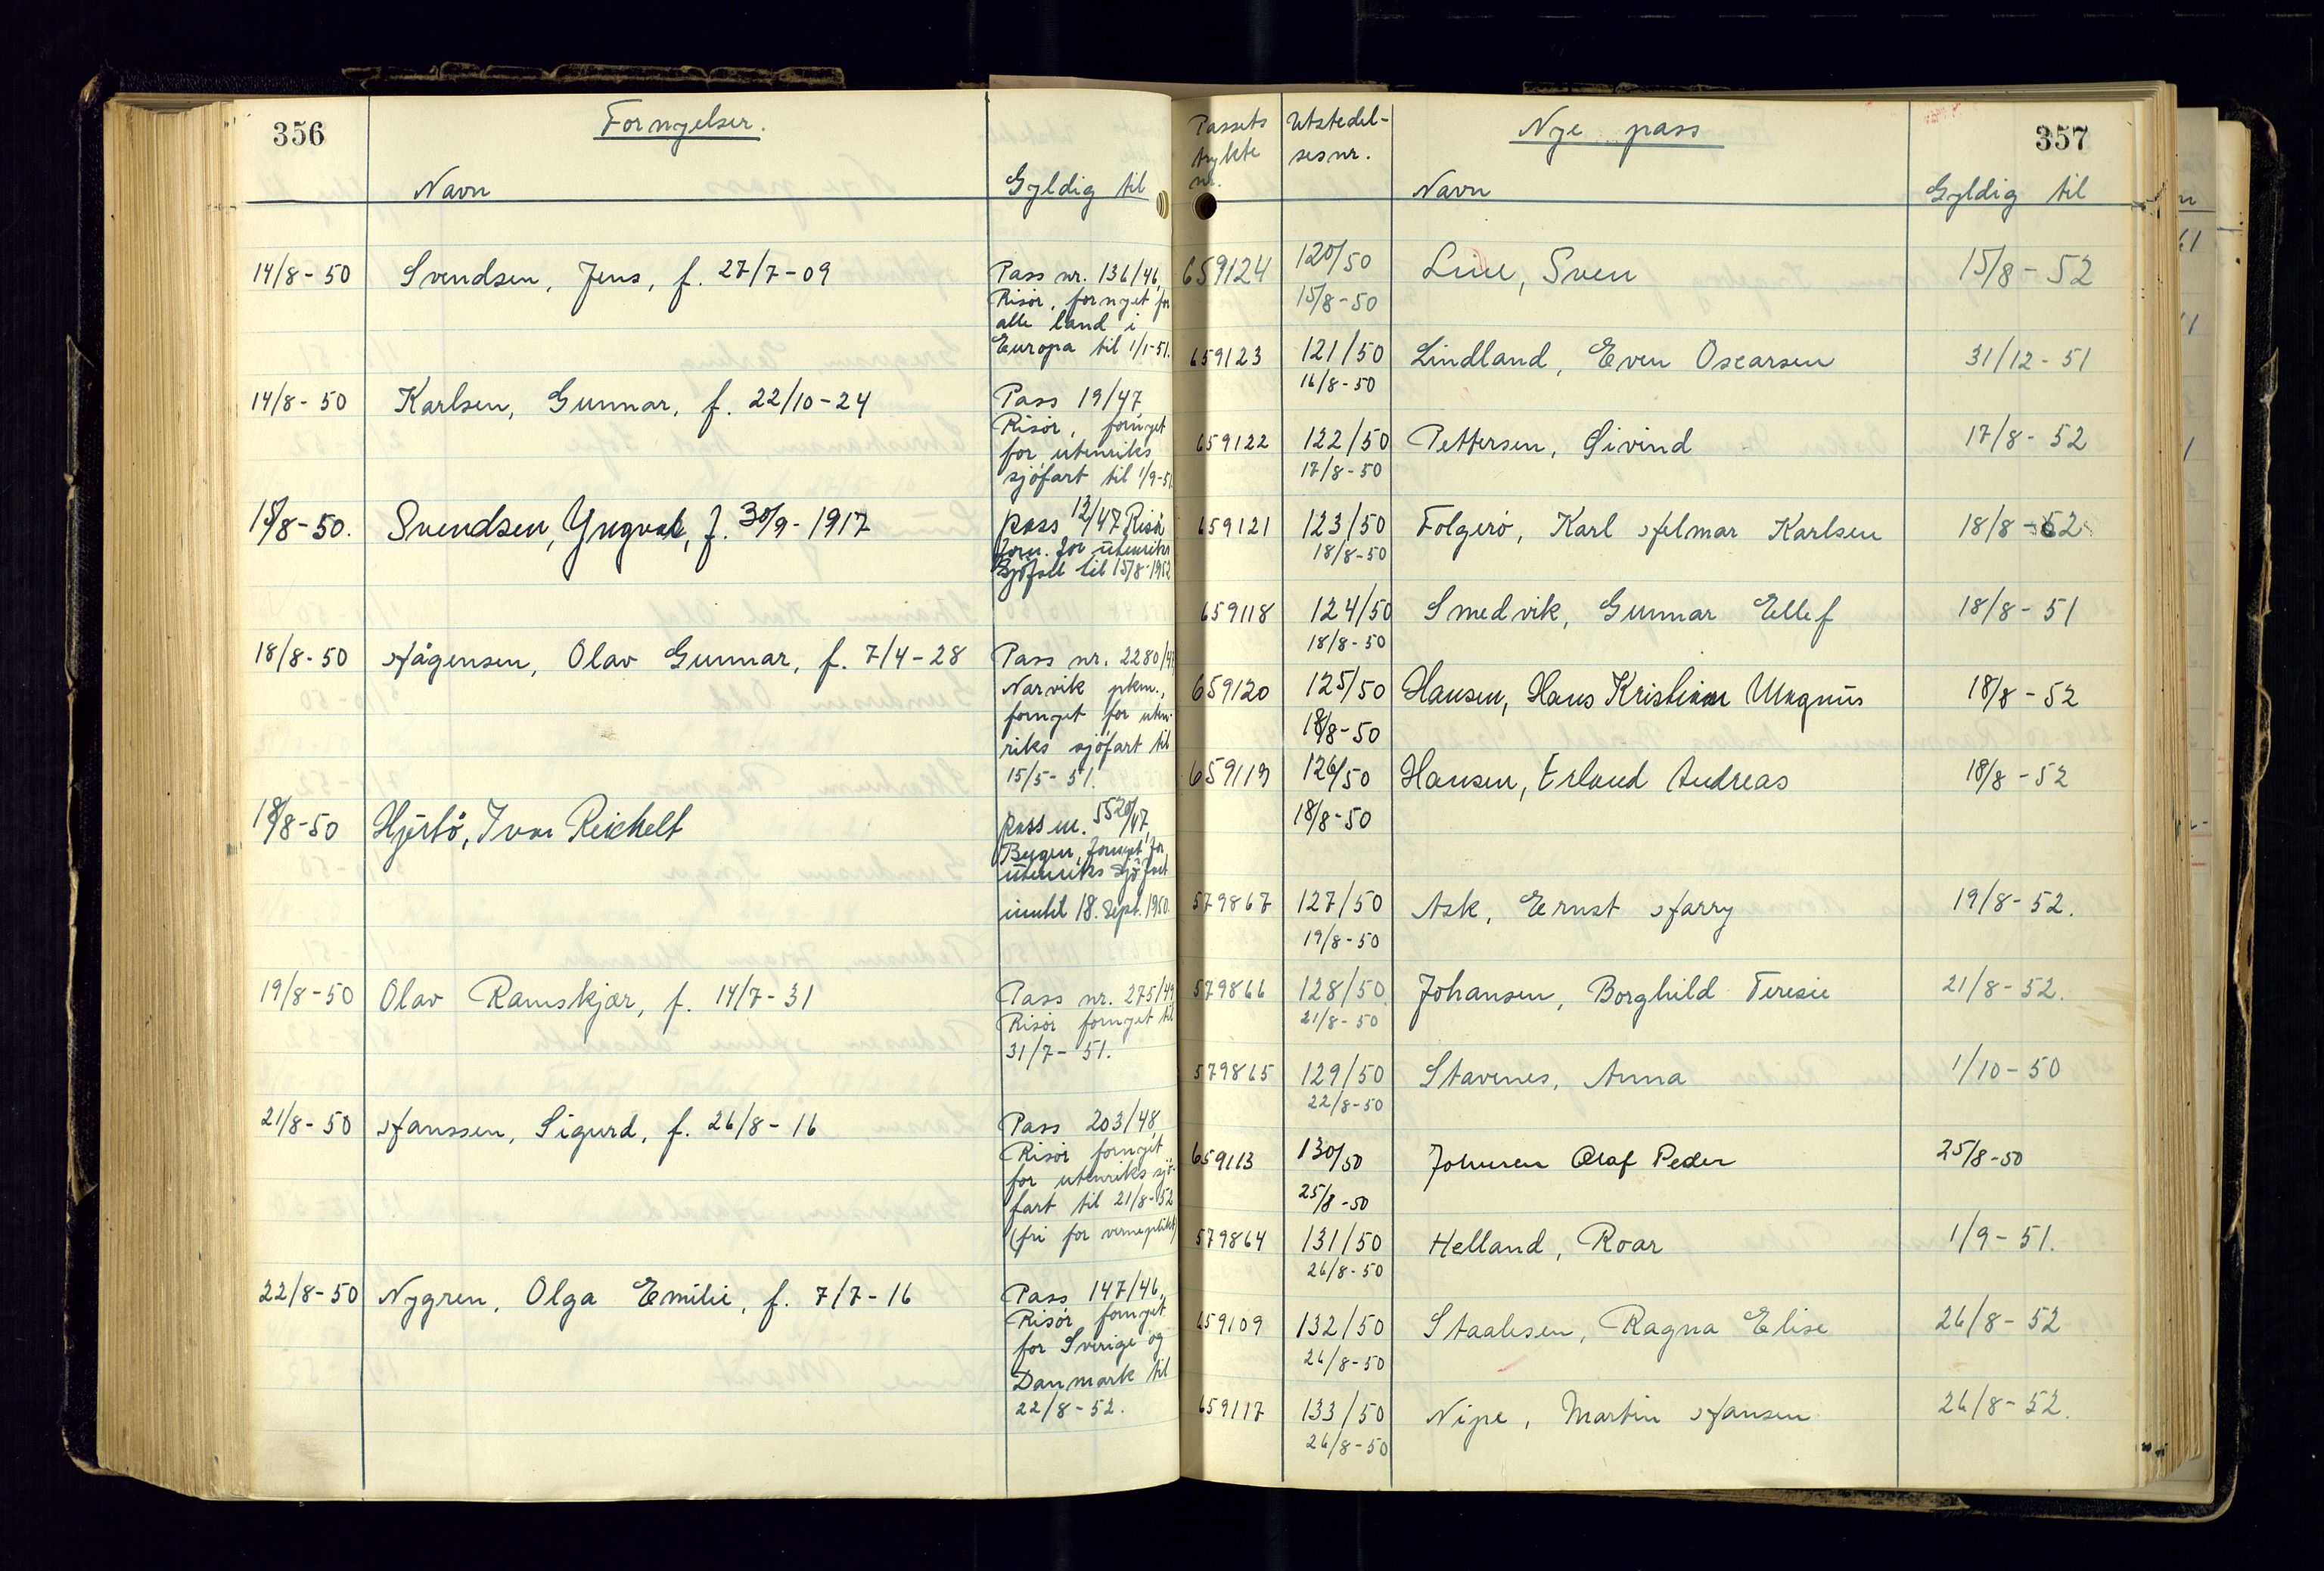 356
Fornyelser.
Navn
Gyldig til
14/8-50 Svendsen, Jens, f. 27/7-09
Pass nr. 136/46,
Risör, fornyet for
alle land i
Europa til 1/1-51.
14/8-50 Karlsen, Gunnar, f. 22/10-24
Pass 19/47
Risör, fornyet
for utenriks
sjöfart til 1/9-51
15/8-50. Svendsen, Yngvar, f. 30/9-1917
pass 12/47 Risör
forn. for utenriks
Sjöfart til 15/8-1952
18/8-50 Hågensen, Olav Gunnar, f. 7/4-28
Pass nr. 2280/
Narvik pkm.,
fornyet for uten-
riks sjöfart til
15/5-51.
18/8-50 Hjertö, Ivar Reichelt
pass nr. 5520/47,
Bergen, fornyet for
utenriks Sjöfart
inntil 18. Sept. 1950.
19/8-50 Olav Ramskjær, f. 14/7-31
Pass nr. 275/49
Risör fornyet til
31/7-51.
21/8-50 Hanssen, Sigurd, f. 26/8-16
Pass 203/48,
Risör fornyet
for utenriks sjö-
fart til 21/8-52
(fri for verneplikt)
22/8-50 Nygren, Olga Emilie, f. 7/7-16
Pass 147/46,
Risör fornyet
for Sverige og
Danmark til
22/8-52.
357
Passets
trykte
nr.
Utstedel-
sesnr.
Nye pass
Navn
Gyldig til
659124 120/50 Line, Sven 15/8-52
15/8-50
659123 121/50 Lindland, Even Oscarsen 31/12-51
16/8-50
659122 122/50 Pettersen, Öivind 17/8-52
17/8-50
659121 123/50 Folgerö, Karl Helmar Karlsen 18/8-52
18/8-50
659118 124/50 Smedvik, Gunnar Ellef 18/8-51
18/8-50
659120 125/50 Hansen, Hans Kristian Magnus 18/8-52
18/8-50
659119 126/50 Hansen, Erland Andreas 18/8-52
18/8-50
579867 127/50 Ask, Ernst Harry 19/8-52.
19/8-50
579866 128/50 Johansen, Borghild Teresie 21/8-52.
21/8-50
579865 129/50 Stavenes, Anna 1/10-50
22/8-50
659113 130/50 Johnsen Olaf Peder 25/8-50
25/8-50
579864 131/50 Helland, Roar 1/9-51.
26/8-50
659109 132/50 Staalesen, Ragna Elise 26/8-52
26/8-50
659117 133/50 Nipe, Martin Hansen 26/8-52.
26/8-50